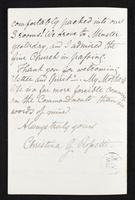 comfortably packed into our
3 rooms! We drove to Minster
yesterday, and I admired the
fine Church in passing.
Thank you for welcoming
"Letter and Spirit". My Mother's
life is a far more forcible comment
on the Commandments than are
words of mine.
Always truly yours
Christina G. Rossetti